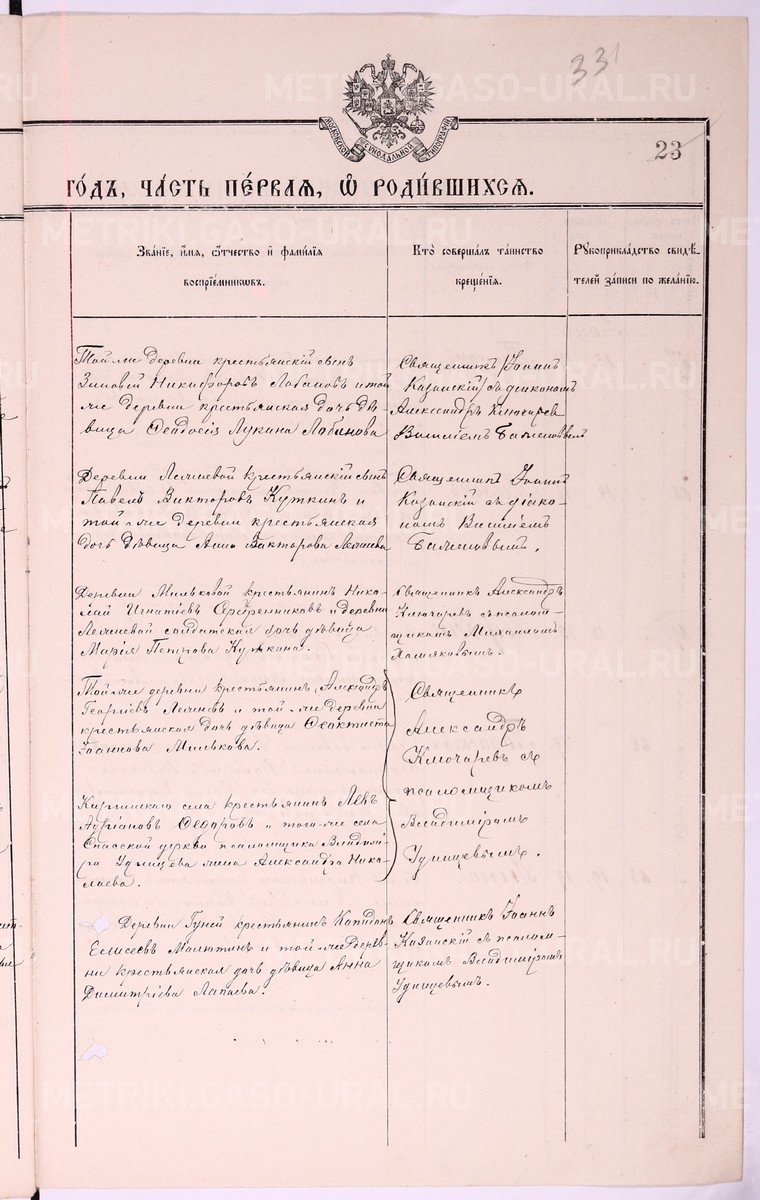 331
METRIKI.GASO-URAL.RU
МОСКОВСКОЙ СѴНОДАЛЬНОЙ ТИПОГРАФІИ
23
ГОДЪ, ЧАСТЬ ПЕРВАЯ, Ѡ РОДИВШИХСЯ.
Званіе, имя, ѿчество и фамилія
воспріемниковъ.
Кто совершалъ таинство
крещенія.
Рукоприкладство свидѣ-
телей записи по желанію.
Той-же деревни крестьянскій сынъ
Зиновій Никифоровъ Лобановъ и той
же деревни крестьянская дочь дѣ-
вица Ѳеодосія Лукина Лобанова
Священникъ Іоаннъ
Казанскій съ діакономъ
Василіемъ
Деревни Лежневой крестьянскій сынъ
Павелъ Викторовъ Куткинъ и
той-же деревни крестьянская
дочь дѣвица Анна Викторова Лежнева
Священникъ Іоаннъ
Казанскій съ діако-
номъ Василіемъ
Деревни Мильковой крестьянинъ Нико-
лай Игнатіевъ Серебренниковъ и деревни
Лежневой солдатская дочь дѣвица
Марія Петрова Куткина.
Священникъ Александръ
Ключаревъ съ псалом-
щикомъ Михаиломъ
Хомяковымъ.
Той-же деревни крестьянинъ Александръ
Георгіевъ Лежневъ и той-же деревни
крестьянская дочь дѣвица Ѳеоктиста
Іоаннова Милькова.
Священникъ
Александръ
Ключаревъ съ
псаломщикомъ
Владиміромъ
Удинцевымъ.
Киргишанскаго села крестьянинъ Левъ
Адріановъ Ѳедоровъ и того-же села
Спасской церкви псаломщика Владимі-
ра Удинцева жена Александра Нико-
лаева.
Деревни Гуней крестьянинъ Капитонъ
Елисеевъ Малютинъ и той-же дерев-
ни крестьянская дочь дѣвица Анна
Димитріева Лапаева.
Священникъ Іоаннъ
Казанскій съ псалом-
щикомъ Владиміромъ
Удинцевымъ.
METRIKI.GASO-URAL.RU